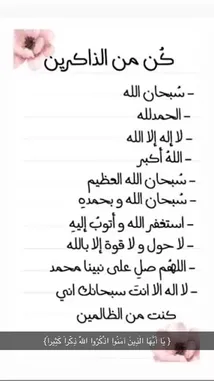 كُن من الذاكرين
- سُبحان الله
- الحمدلله
- لا إله إلا الله
- اللهُ أكبر
- سُبحان الله العظيم
- سُبحان الله و بحمدهِ
- استغفر الله و أتوبُ إليهِ
- لا حول و لا قوة إلا بالله
- اللهُم صلِ على نبينا محمد
- لا اله الا انتَ سبحانكَ اني
كنت من الظالمين
{ يَا أَيُّهَا الَّذِينَ آمَنُوا اذْكُرُوا اللَّهَ ذِكْرًا كَثِيرًا }